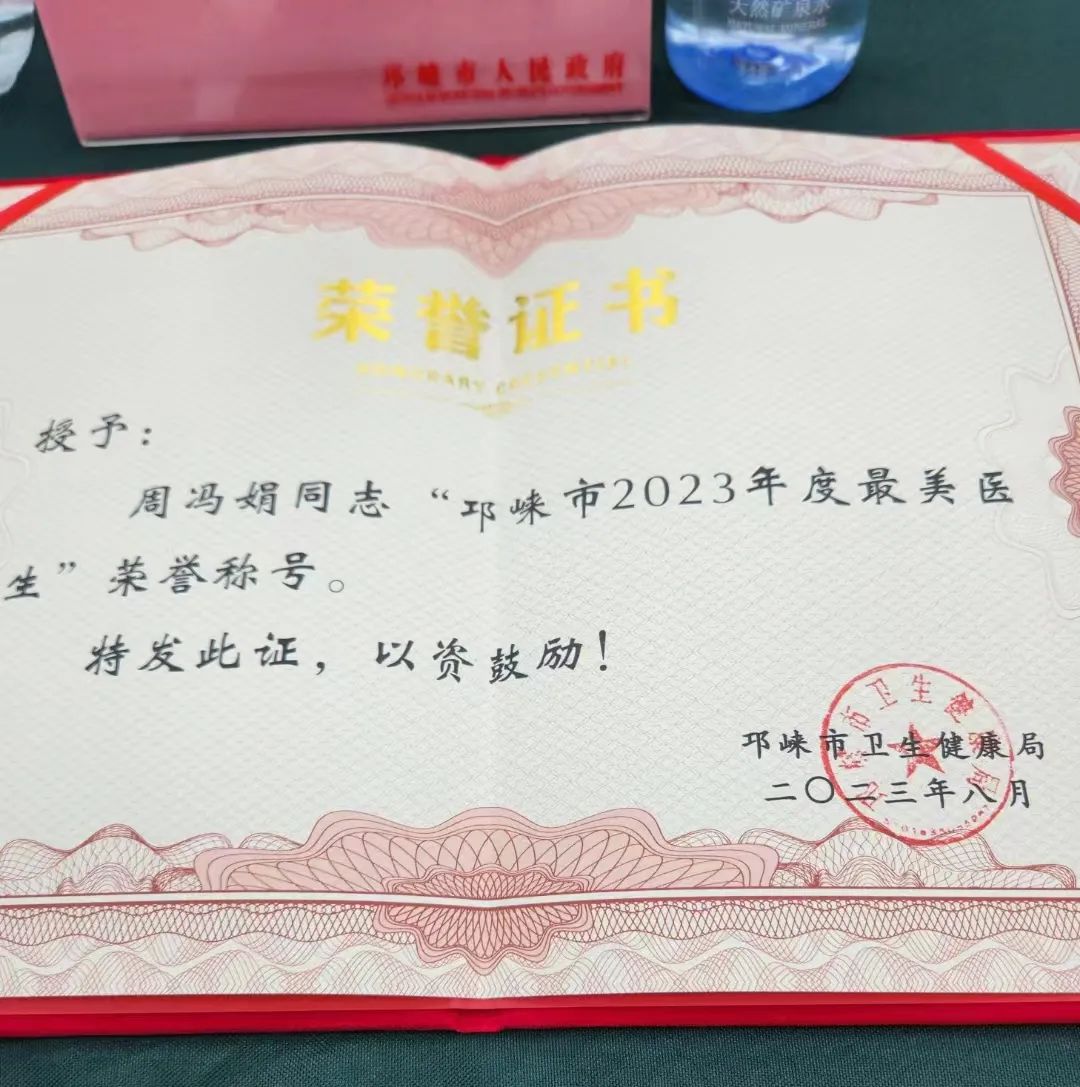 天然矿泉水
邛崃市人民政府
荣誉证书
授予：
周冯娟同志“邛崃市2023年度最美医
生”荣誉称号。
特发此证，以资鼓励！
邛崃市卫生健康局
二〇二三年八月